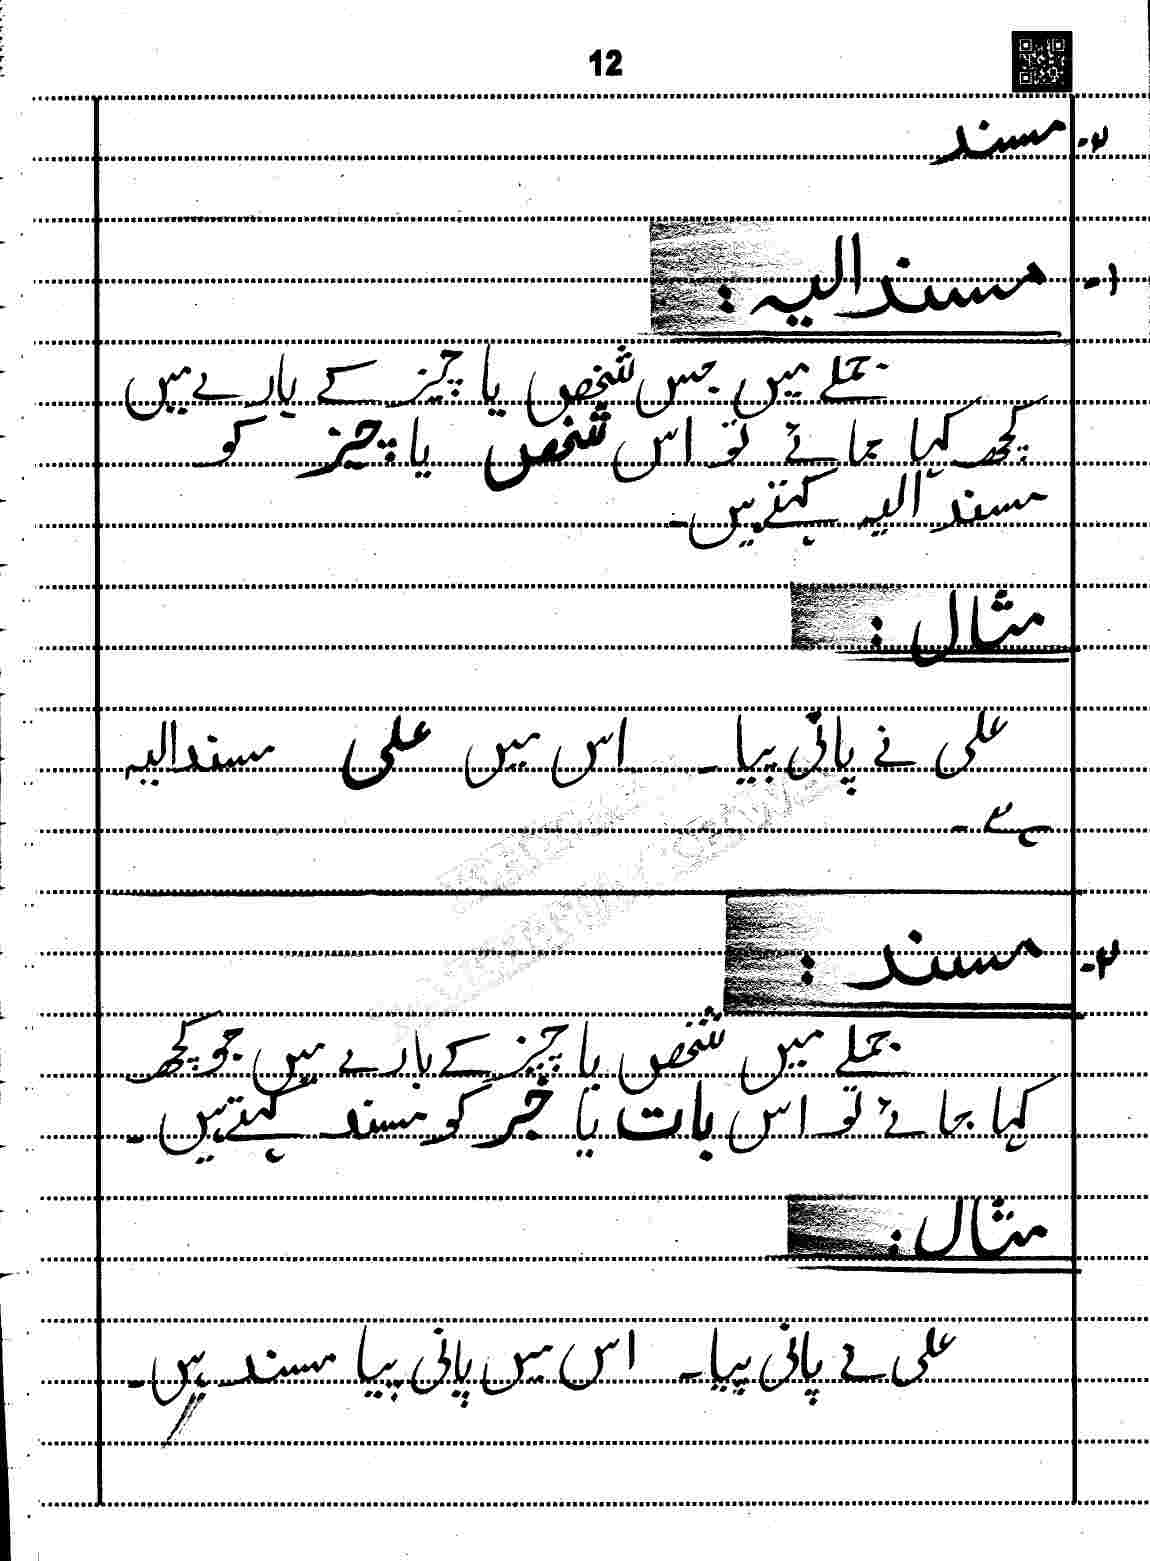 12
۲- مسند
۱- مسند الیہ :
جملے میں جس شخص یا چیز کے بارے میں
کچھ کہا جائے تو اس شخص یا چیز کو
مسند الیہ کہتے ہیں۔
مثال :
علی نے پانی پیا ۔ اس میں علی مسند الیہ
ہے ۔
۲- مسند :
جملے میں شخص یا چیز کے بارے میں جو کچھ
کہا جائے تو اس بات یا خبر کو مسند کہتے ہیں ۔
مثال :
علی نے پانی پیا ۔ اس میں پانی پیا مسند ہیں ۔